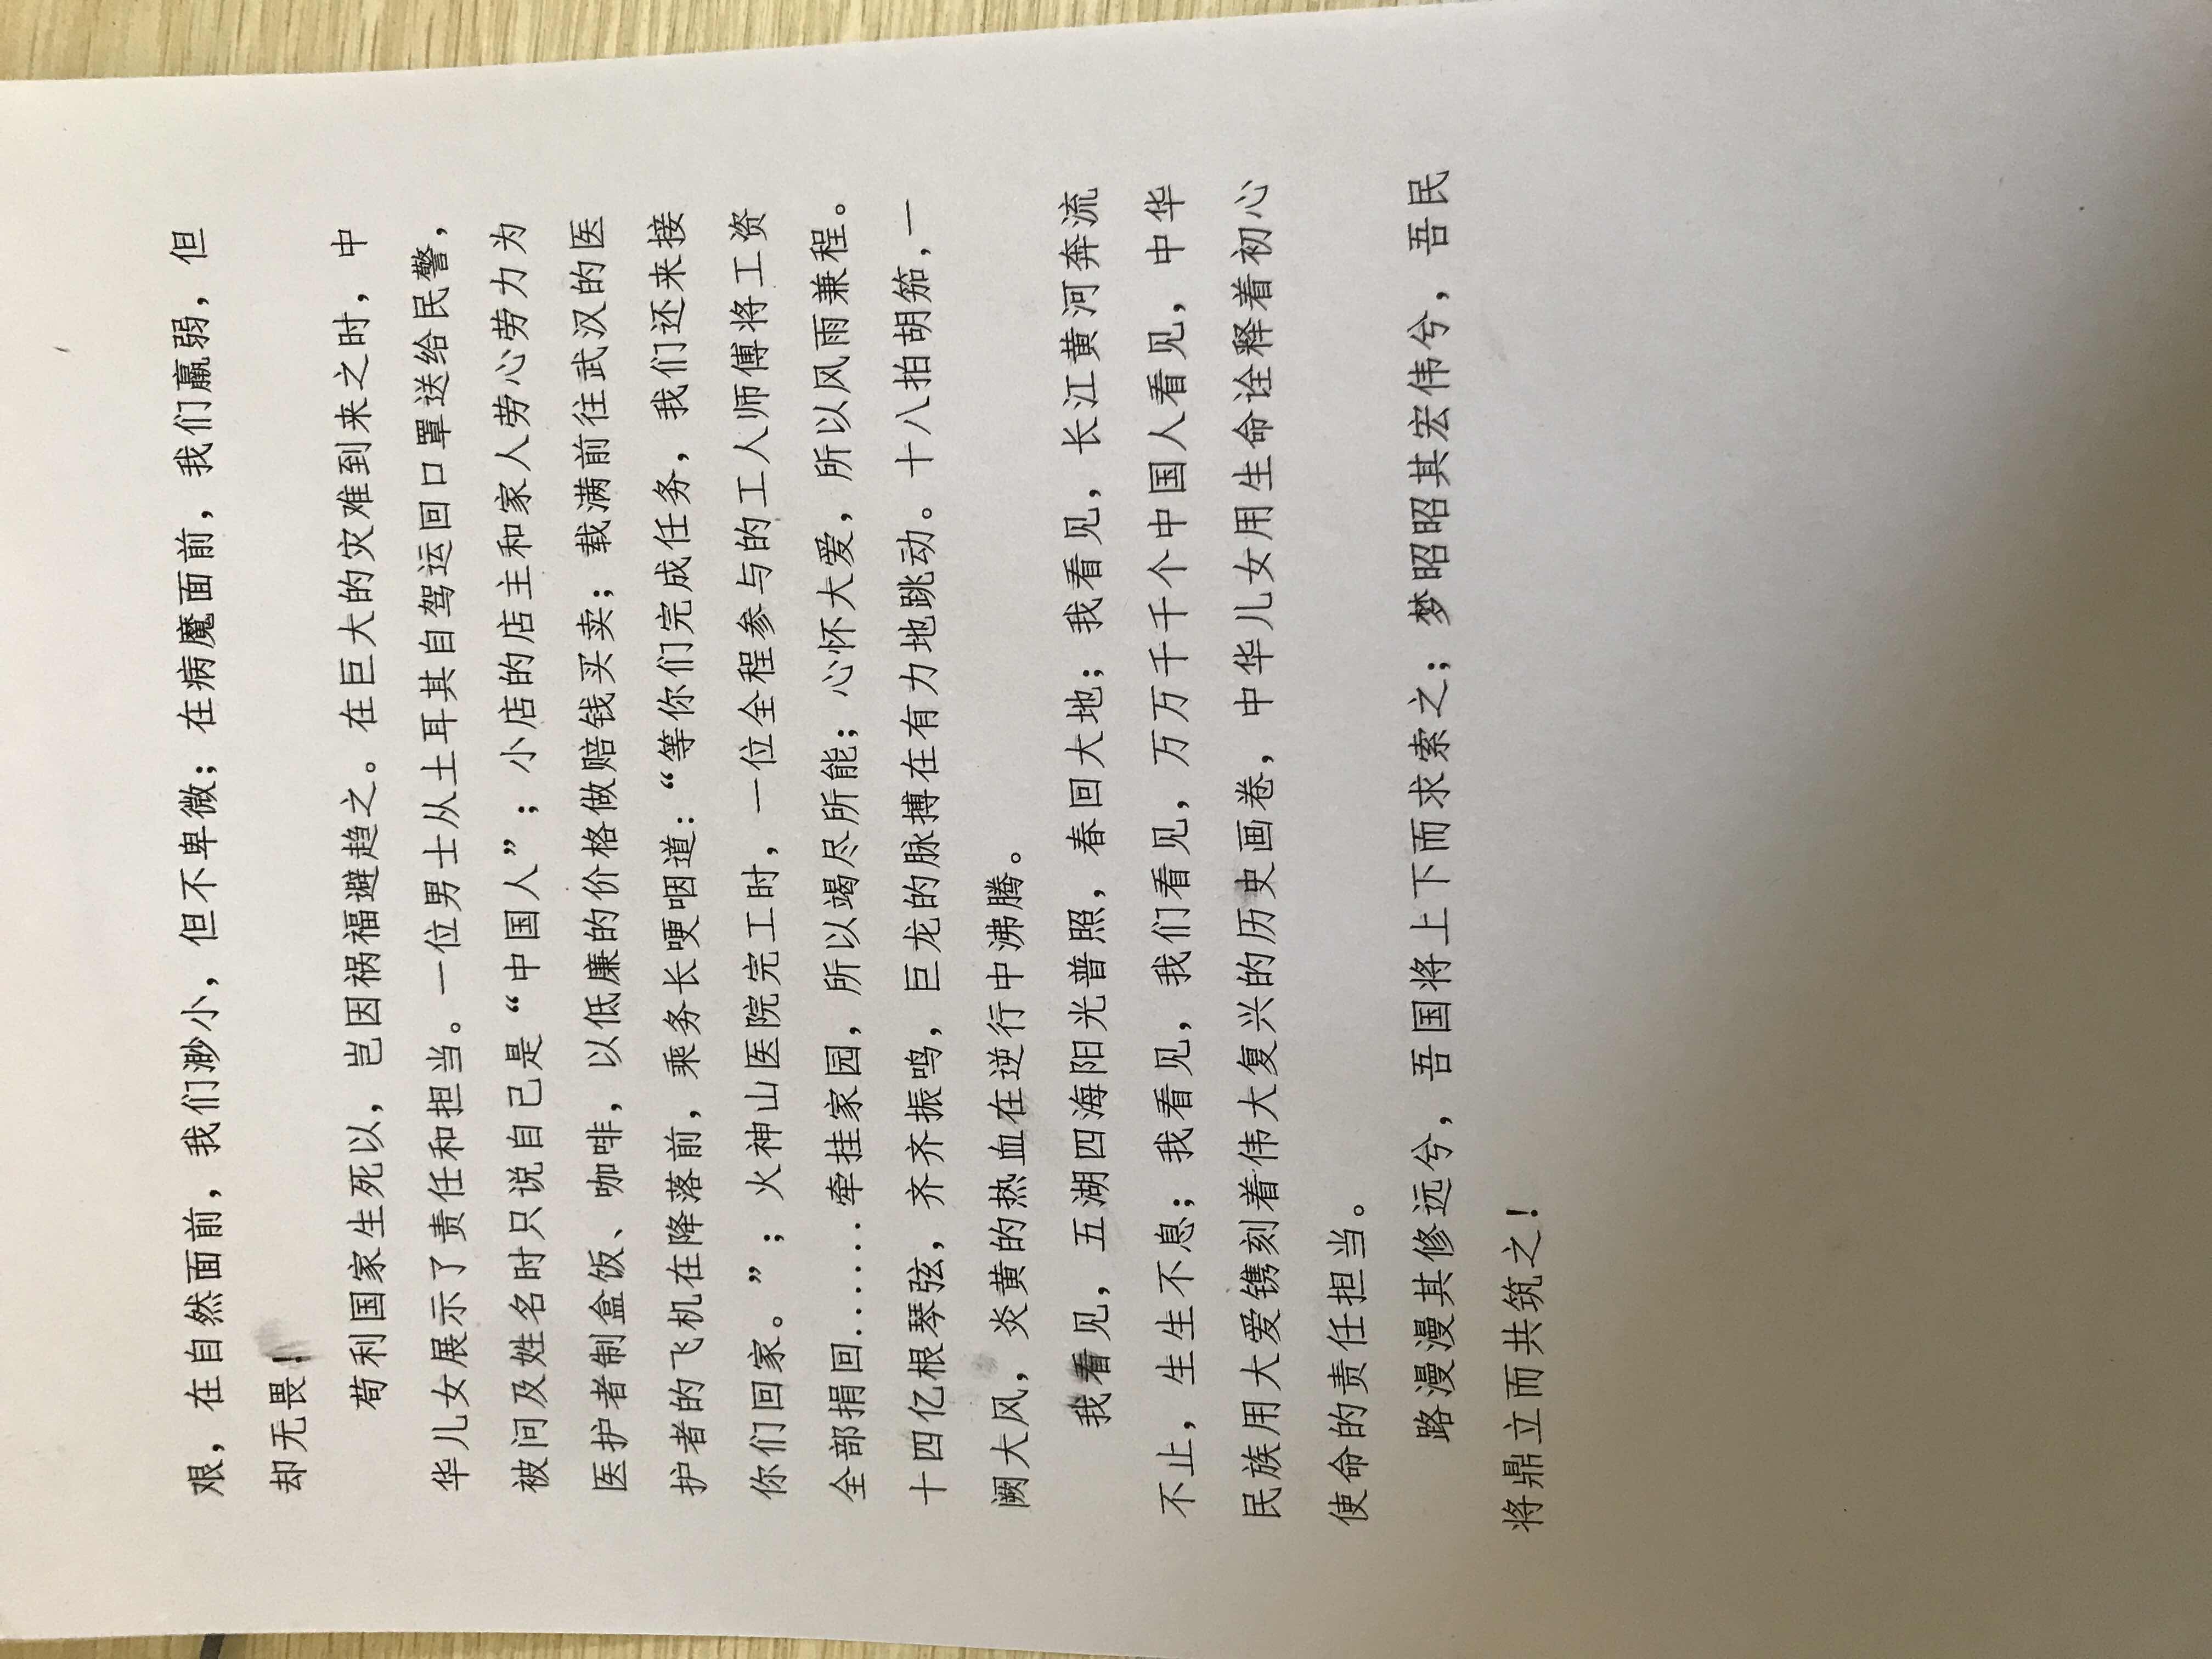 艰，在自然面前，我们渺小，但不卑微；在病魔面前，我们羸弱，但
却无畏！
苟利国家生死以，岂因祸福避趋之。在巨大的灾难到来之时，中
华儿女展示了责任和担当。一位男士从土耳其自驾运回口罩送给民警，
被问及姓名时只说自己是“中国人”；小店的店主和家人劳心劳力为
医护者制盒饭、咖啡，以低廉的价格做赔钱买卖；载满前往武汉的医
护者的飞机在降落前，乘务长哽咽道：“等你们完成任务，我们还来接
你们回家。”；火神山医院完工时，一位全程参与的工人师傅将工资
全部捐回……牵挂家园，所以竭尽所能；心怀大爱，所以风雨兼程。
十四亿根琴弦，齐齐振鸣，巨龙的脉搏在有力地跳动。十八拍胡笳，一
阙大风，炎黄的热血在逆行中沸腾。
我看见，五湖四海阳光普照，春回大地；我看见，长江黄河奔流
不止，生生不息；我看见，我们看见，万万千千个中国人看见，中华
民族用大爱镌刻着伟大复兴的历史画卷，中华儿女用生命诠释着初心
使命的责任担当。
路漫漫其修远兮，吾国将上下而求索之；梦昭昭其宏伟兮，吾民
将鼎立而共筑之！